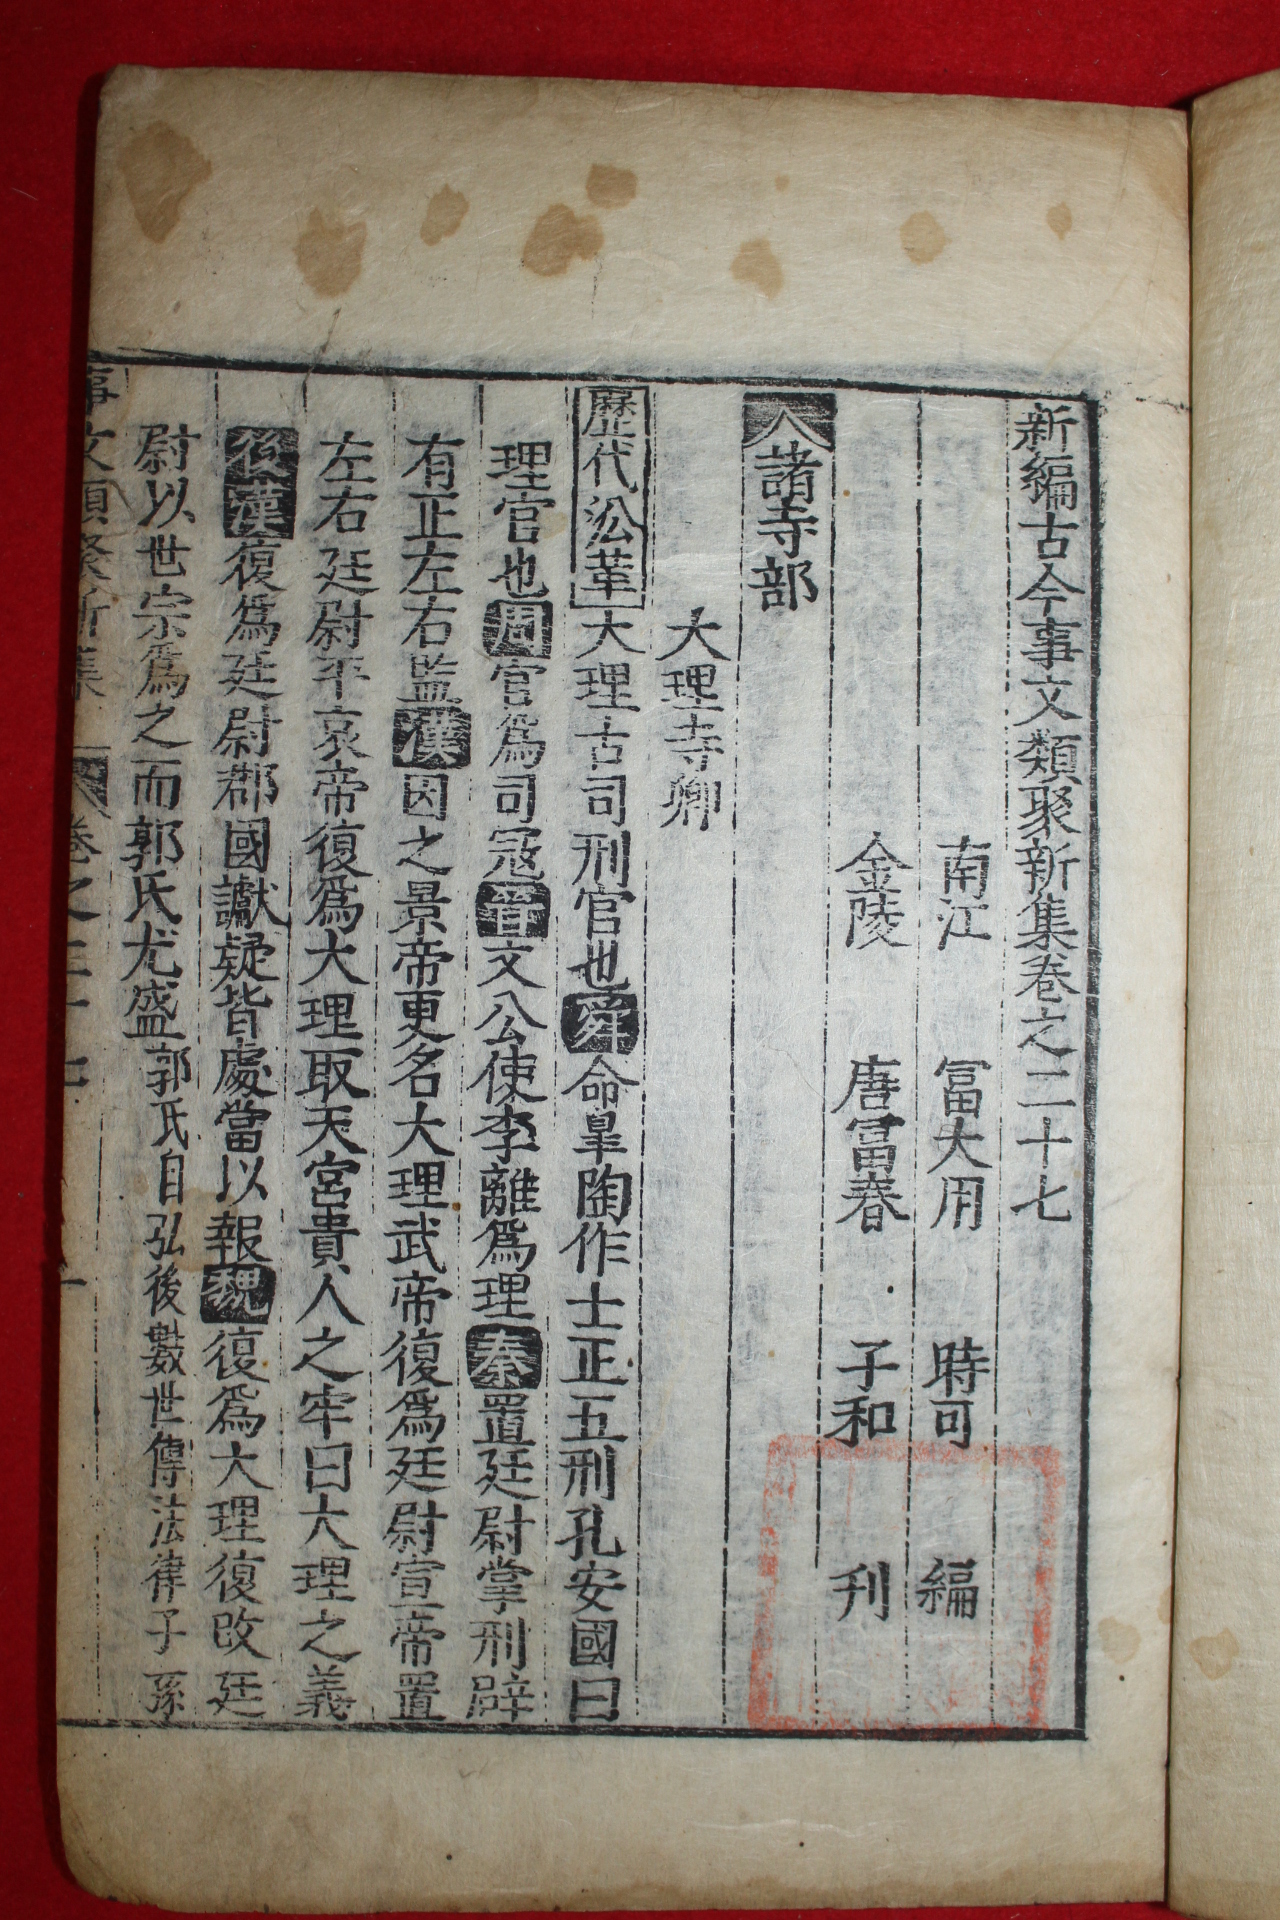 新編古今事文類聚新集卷之二十七
南江 冨大用 時可 編
金陵 唐冨春 子和 刋
諸寺部
大理寺卿
歷代沿革大理古司刑官也舜命臯陶作士正五刑孔安國曰
理官也周官爲司冦晋文公使李離爲理秦置廷尉掌刑辟
有正左右監漢因之景帝更名大理武帝復爲廷尉宣帝置
左右廷尉平哀帝復爲大理取天宫貴人之牢曰大理之義
後漢復爲廷尉郡國讞疑皆處當以報魏復爲大理復改廷
尉以世宗爲之而郭氏尤盛郭氏自弘後數世傳法律子孫
事文類聚新集 卷之二十七 一